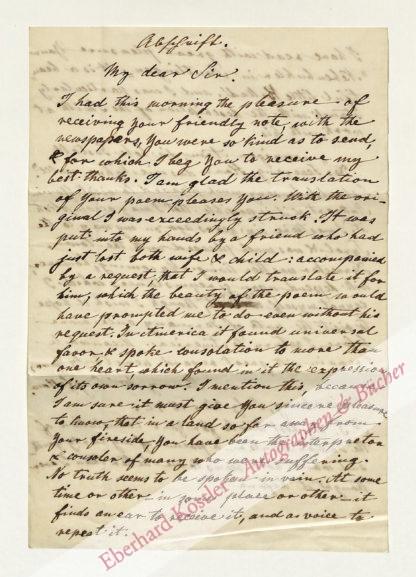 Abschrift.
My dear Sir!
I had this morning the pleasure of
receiving your friendly note, with the
newspapers, You were so kind as to send,
& for which I beg You to receive my
best thanks. I am glad the translation
of Your poem pleases You. With the ori-
ginal I was exceedingly struck. It was
put into my hands by a friend who had
just lost both wife & child: accompanied
by a request, that I would translate it for
him, which the beauty of the poem would
have prompted me to do even without his
request. In America it found universal
favor & spoke consolation to more than
one heart, which found in it the expression
of its own sorrow. I mention this, because
I am sure it must give You sincere pleasure
to know, that in a land so far away from
Your fireside, You have been the interpretor
& consoler of many who were suffering.
No truth seems to be spoken in vain. At some
time or other in some place or other it
finds an ear to receive it, and as voice to
repeat it.
Eberhard Köstler · Autographen & Bücher